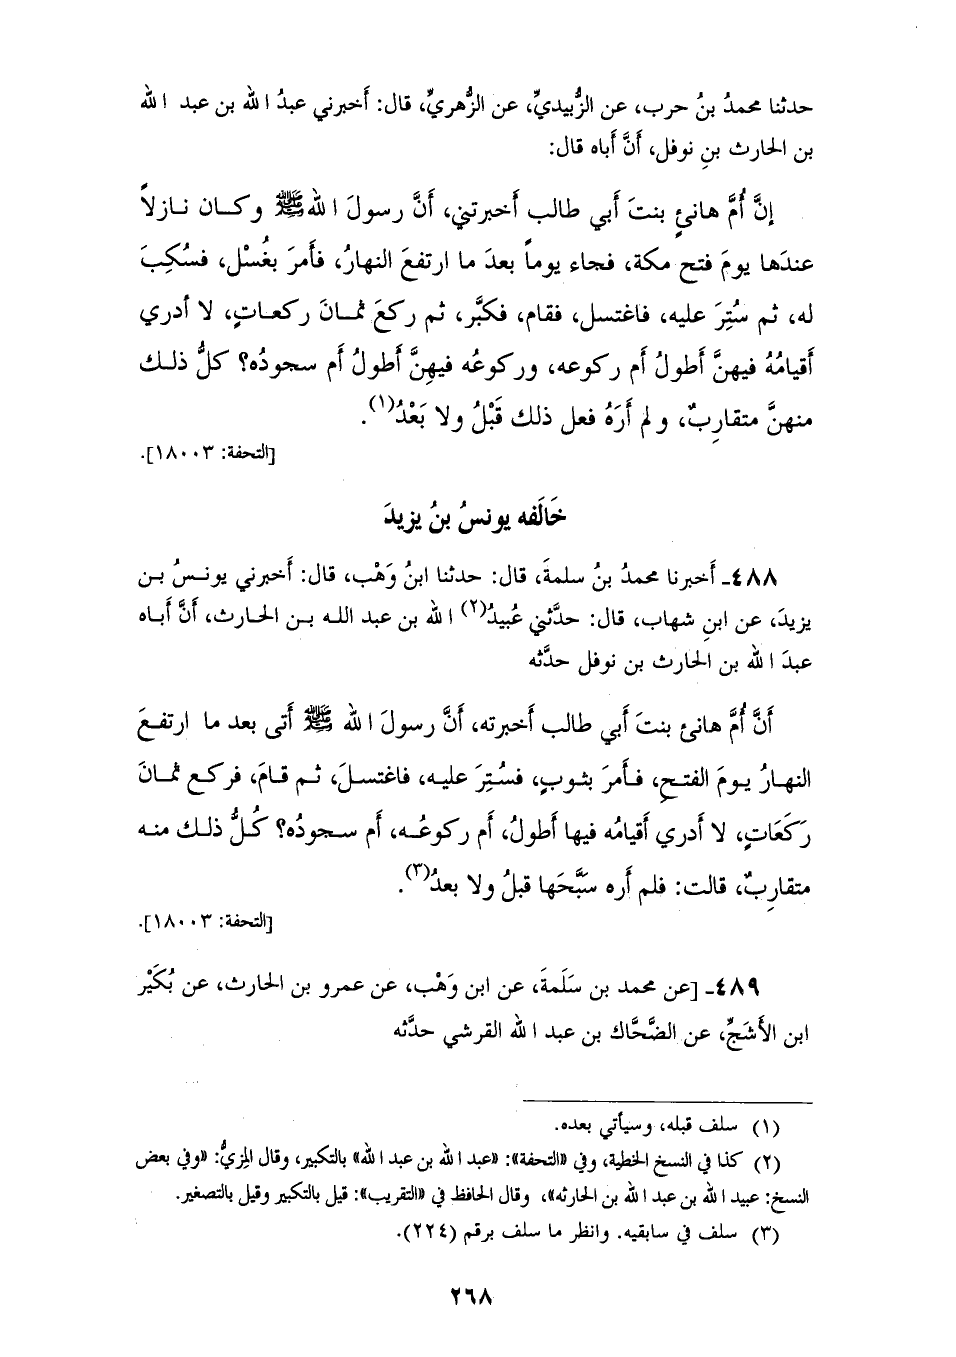 حدثنا محمدُ بنُ حرب، عن الزُّبيديِّ، عن الزُّهريِّ، قال: أَخبرني عبدُ الله بن عبد الله
بن الحارث بنِ نوفل، أَنَّ أَباه قال:
إنَّ أُمَّ هانئٍ بنتَ أَبي طالب أَخبرتني، أَنَّ رسولَ اللهﷺ وكـان نـازلاً
عندَها يومَ فتح مكة، فجاء يوماً بعدَ ما ارتفعَ النهارُ، فأَمرَ بغُسْل، فسُكِبَ
له، ثم سُتِرَ عليه، فاغتسل، فقام، فكبَّر، ثم ركعَ ثمـانَ ركعـاتٍ، لا أدري
أَقيامُهُ فيهنَّ أَطولُ أَم ركوعه، وركوعُه فيهِنَّ أَطولُ أَم سجودُه؟ كلُّ ذلـك
منهنَّ متقارِبٌ، ولم أَرَهُ فعل ذلك قَبْلُ ولا بَعْدُ(١).
[التحفة: ١٨٠٠٣].
خَالَفه يونسُ بنُ يزيدَ
٤٨٨ـ أَخبرنا محمدُ بنُ سلمةَ، قال: حدثنا ابنُ وَهْب، قال: أَخبرني يونـسُ بـن
يزيدَ، عن ابنِ شهاب، قال: حدَّثني عُبيدُ(٢) الله بن عبد الله بـن الحـارث، أَنَّ أَبـاه
عبدَ الله بن الحارث بن نوفل حدَّثه
أَنَّ أُمَّ هانئ بنتَ أَبي طالب أَخبرته، أَنَّ رسولَ الله ﷺ أَتى بعد ما ارتفـعَ
النهارُ يـومَ الفتـحِ، فـأَمرَ بثـوبٍ، فسُتِرَ عليـه، فاغتسـلَ، ثـم قـامَ، فركـع ثمـانَ
رَكَعَاتٍ، لا أَدري أَقيامُه فيها أَطولُ، أَم ركوعُـه، أَم سـجودُه؟ كُـلُّ ذلـك منـه
متقارِبٌ، قالت: فلم أَره سَبَّحَها قبلُ ولا بعدُ(٣).
[التحفة: ١٨٠٠٣].
٤٨٩ـ [عن محمد بن سَلَمةَ، عن ابن وَهْب، عن عمرو بن الحارث، عن بُكَيْر
ابن الأَشَجِّ، عن الضَّحَّاك بن عبد الله القرشي حدَّثه
(١) سلف قبله، وسيأتي بعده.
(٢) كذا في النسخ الخطية، وفي «التحفة»: «عبد الله بن عبد الله» بالتكبير، وقال المِزيُّ: «وفي بعض
النسخ: عبيد الله بن عبد الله بن الحارثه»، وقال الحافظ في «التقريب»: قيل بالتكبير وقيل بالتصغير.
(٣) سلف في سابقيه. وانظر ما سلف برقم (٢٢٤).
٢٦٨